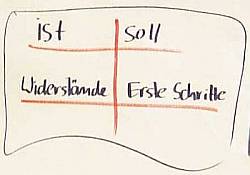 ist soll
Widerstände Erste Schritte